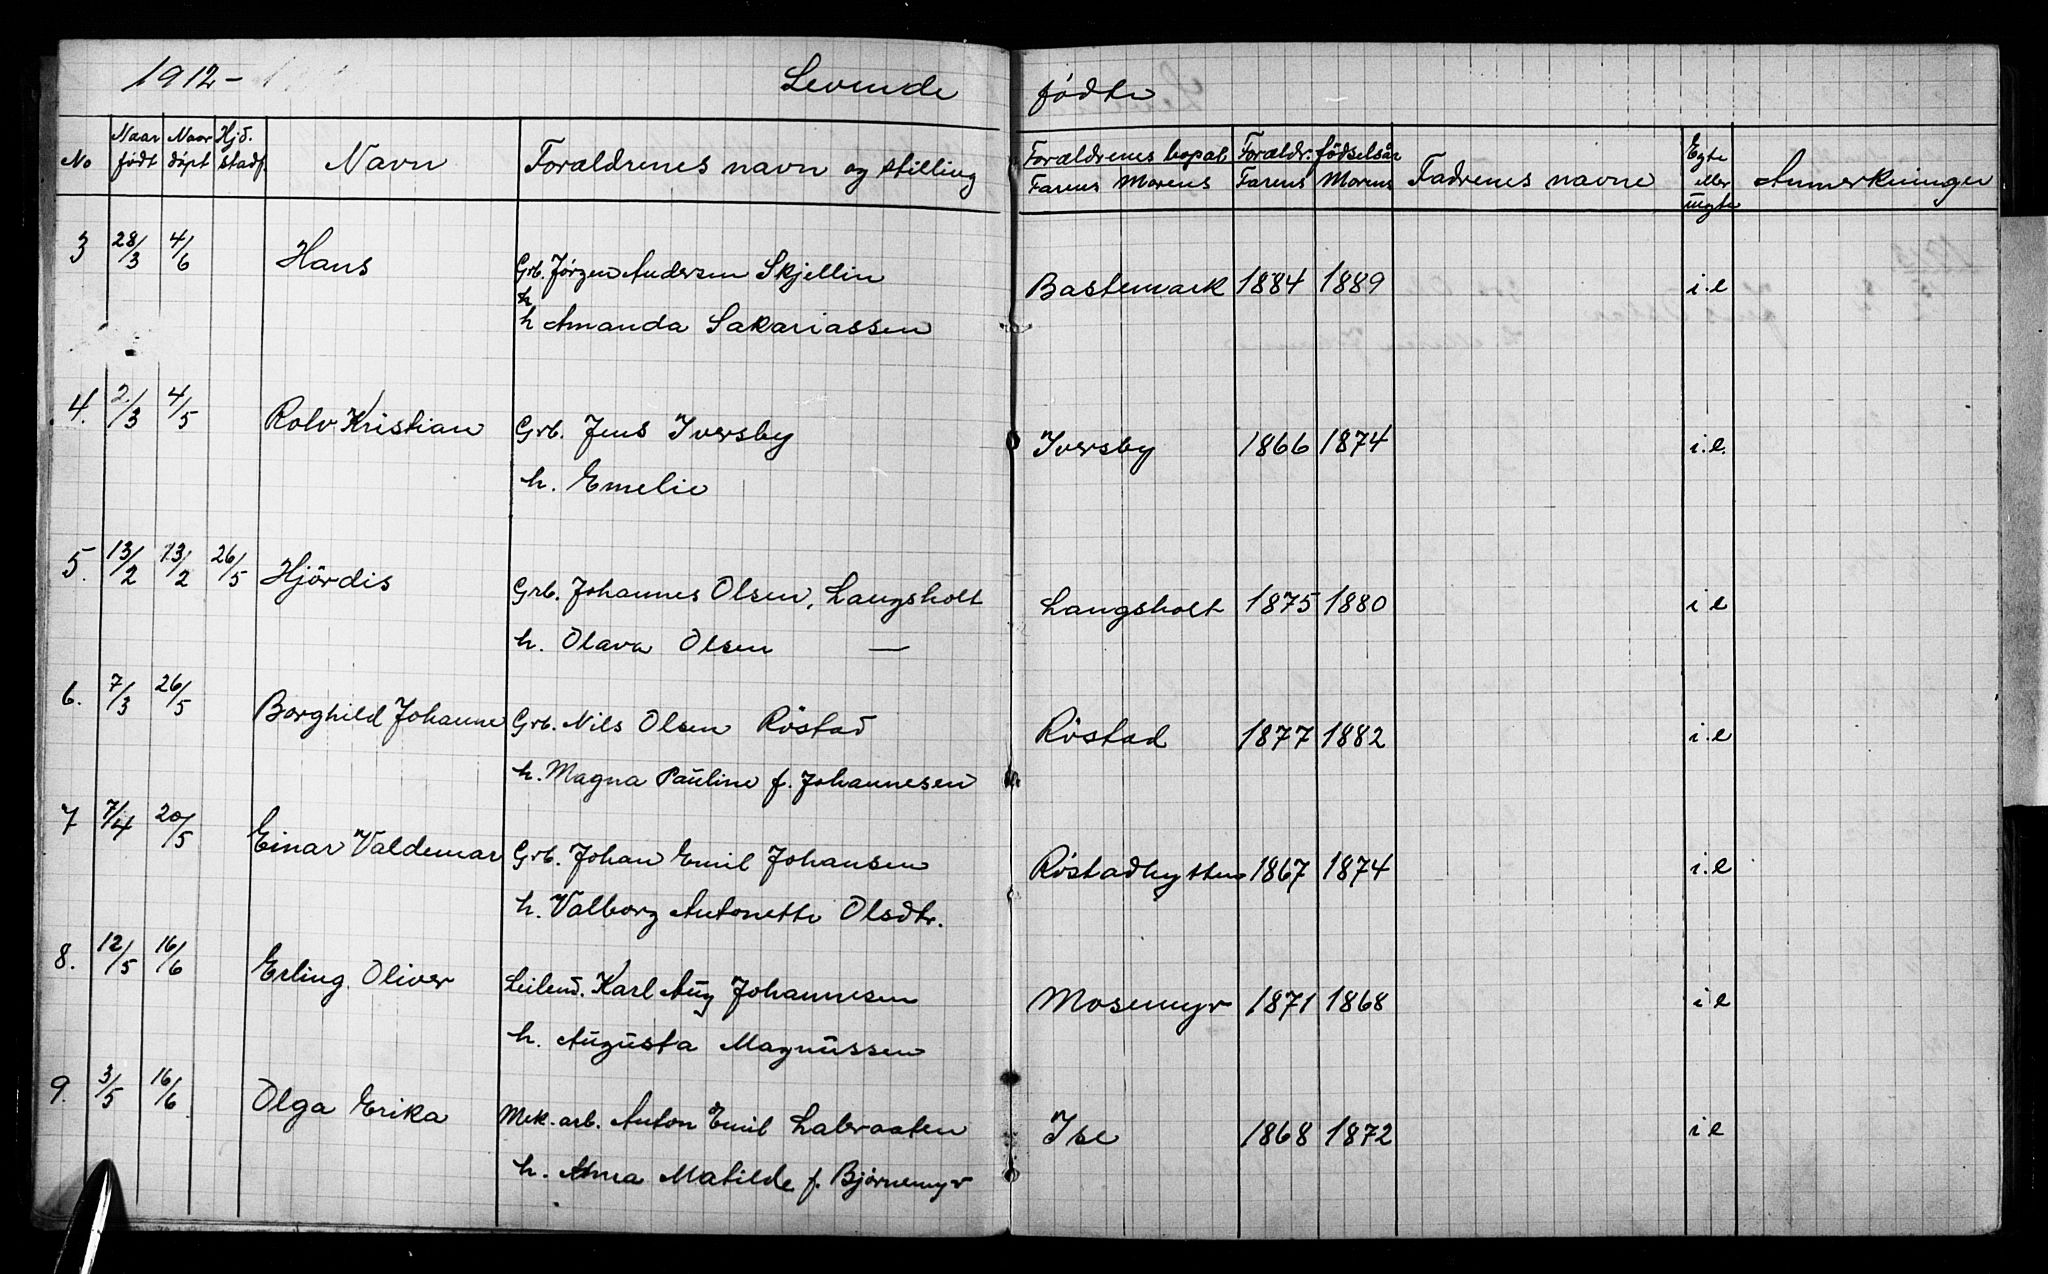 1912 - Levende fødte
No Naar født Naar døpt Hjd. stadf. Navn Foræeldrenes navn og stilling Forældrenes bopæl Farens Morens Forældr. fødselsår Farens Morens Fadrenes navne Egte eller uegte Anmerkninger
3 28/3 4/6 Hans Grb. Jørgen Andersen Skjellin Bastemark 1884 1889 i.e
h
h Amanda Sakariassen
4. 2/3 4/5 Rolv Kristian Grb. Jens Iversby Iversby 1866 1874 i.e.
h. Emelie
5. 13/2 13/2 26/5 Hjördis Grb. Johannes Olsen, Langsholt Langsholt 1875 1880 i e
h. Olava Olsen —
6. 7/3 26/5 Borghild Johanne Grb. Nils Olsen Röstad Röstad 1877 1882 i.e
h. Magna Pauline f. Johannesen
7 7/4 20/5 Einar Valdemar Grb. Johan Emil Johansen Röstadhytten 1867 1874 i.e
h. Valborg Antonette Olsdtr.
8. 12/5 16/6 Erling Oliver Leilend. Karl Aug Johannesen Mosemyr 1871 1868 i e
h. Augusta Magnussen
9. 3/5 16/6 Olga Erika Mek. arb. Anton Emil Labraaten Ise 1868 1872 i e
h. Anna Matilde f. Bjørnemyr